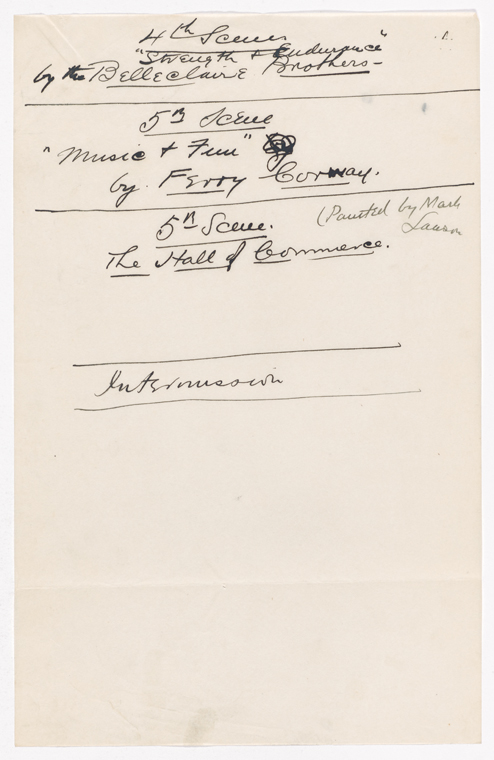 4th Scene
"Strength & Endurance"
by the Belleclaire Brothers-
5th Scene
"Music & Fun"
by Ferry Corway.
5th Scene.
(Painted by Mark
Lawson
The Hall of Commerce.
Intermission